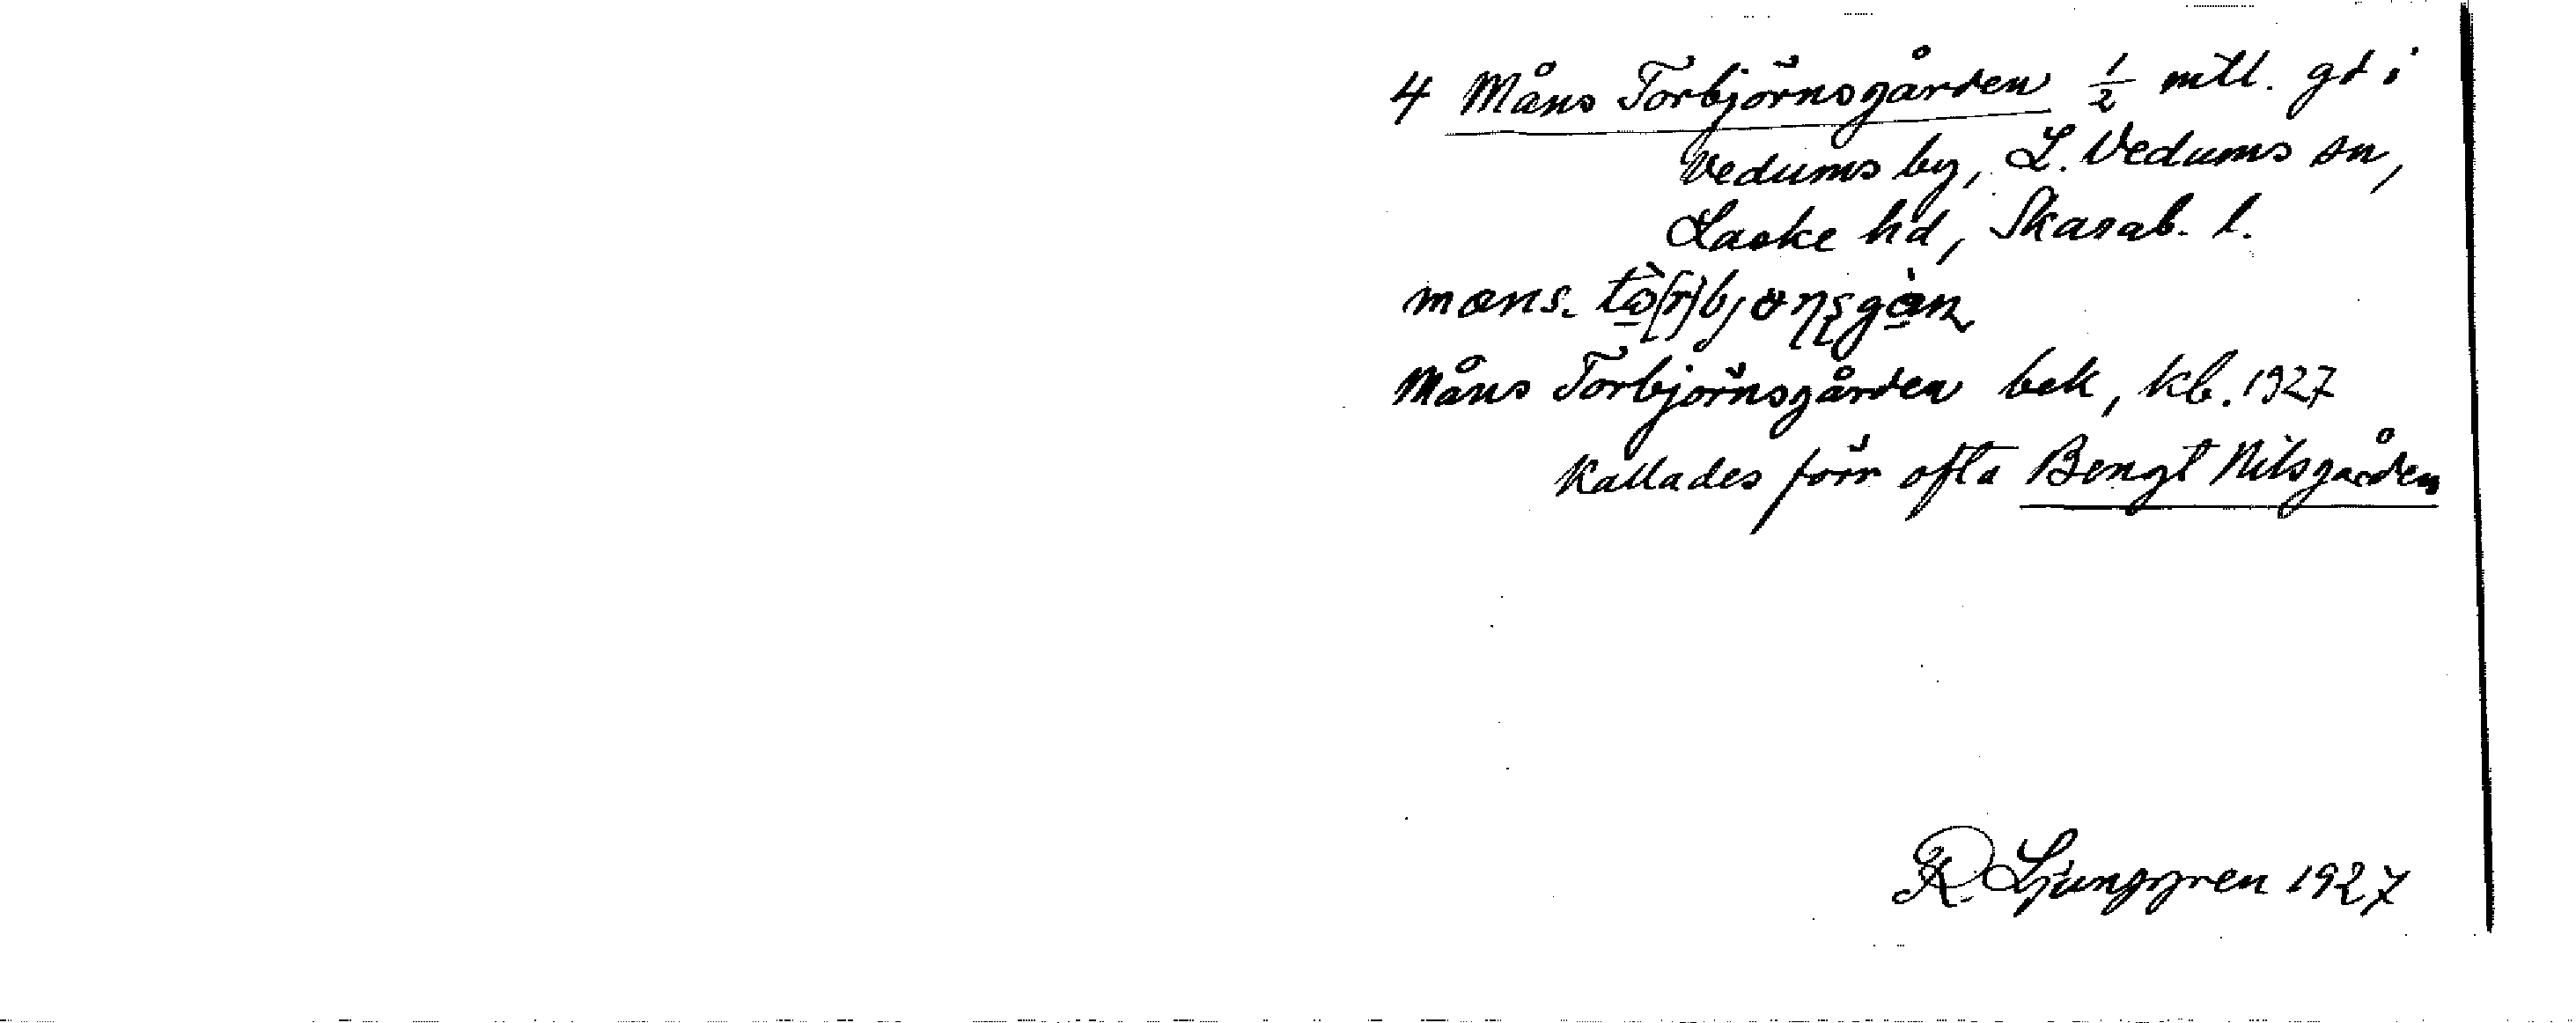 4 Måns Torbjörnsgården 1/2 mtl. gd i
Vedums by, L. Vedums sn,
Laske hd, Skarab. l.
Måns Torbjörnsgården bek, kb. 1927
Kallades förr ofta Bengt Nilsgården
R. Ljunggren 1927